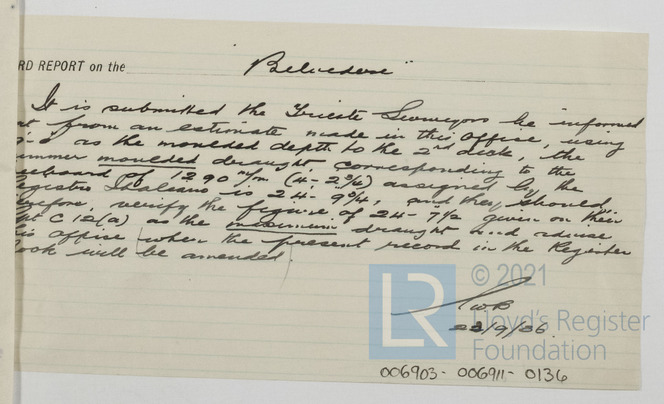 RD REPORT on the "Belvedere"
It is submitted the Trieste Surveyors be informed
at from an estimate made in this Office, using
as the moulded depth to the 2nd deck, the
ummer moulded draught, corresponding to the
eeboard of 1290 m/m (4-2¾) assigned by the
egistro Italiano is 24-9¾, and they should
refore, verify the figure of 24-7½ given on their
C 12(a) as the maximum draught and advise
is office when the present record in the Register
ook will be amended.
22/9/36.
LR
© 2021
Lloyd's Register
Foundation
006903-006911-0136